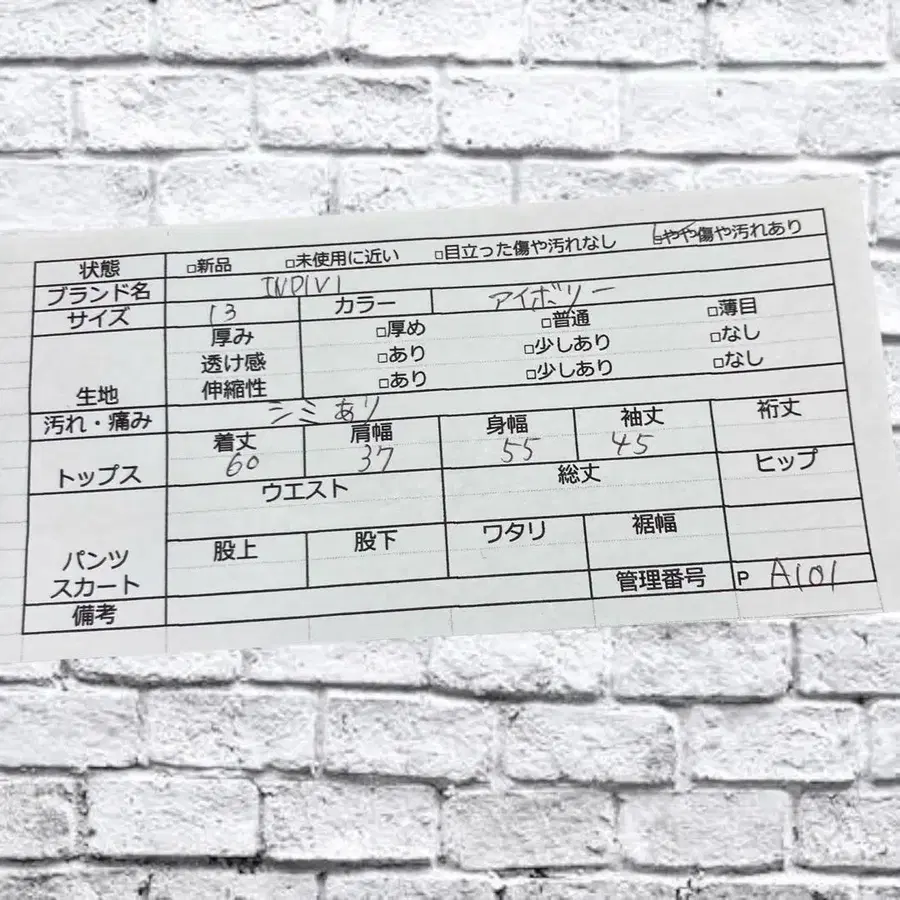 状態 □新品 □未使用に近い □目立った傷や汚れなし □やや傷や汚れあり
ブランド名 INDIVI
サイズ 13 カラー アイボリー
生地 厚み □厚め □普通 □薄目
透け感 □あり □少しあり □なし
伸縮性 □あり □少しあり □なし
汚れ・痛み シミあり
トップス 着丈 肩幅 身幅 袖丈 裄丈
60 37 55 45
パンツ スカート ウエスト 総丈 ヒップ
股上 股下 ワタリ 裾幅
備考 管理番号 P A101